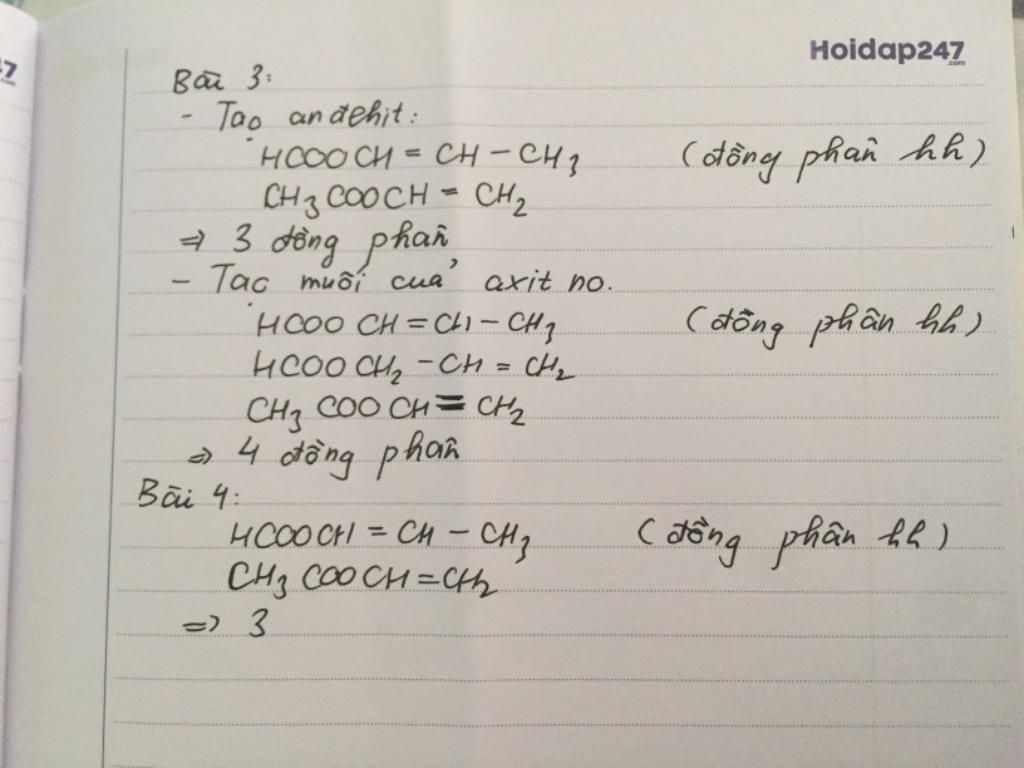 Hoidap247
.com
7
.com
Bài 3:
- Tạo anđehit:
HCOOCH = CH - CH3 (đồng phân hh)
CH3COOCH = CH2
=> 3 đồng phân
- Tạo muối của axit no.
HCOOCH = CH - CH3 (đồng phân hh)
HCOOCH2 - CH = CH2
CH3COOCH = CH2
=> 4 đồng phân
Bài 4:
HCOOCH = CH - CH3 (đồng phân hh)
CH3COOCH = CH2
=> 3